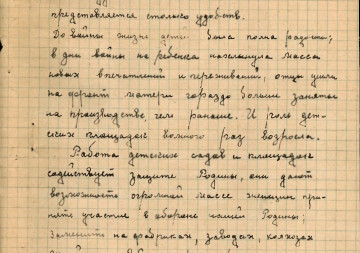 представляется столько удобств.
До войны жизнь детей была полна радости;
в дни войны на ребенка нахлынула масса
новых впечатлений и переживаний, отцы ушли
на фронт матери гораздо больше заняты
на производстве, чем раньше. И роль дет-
ских площадок во много раз возросла.
Работа детских садов и площадок
содействует защите Родины, они дают
возможность огромной массе женщин при-
нять участие в обороне нашей Родины;
Заменить на фабриках, заводах, колхозах